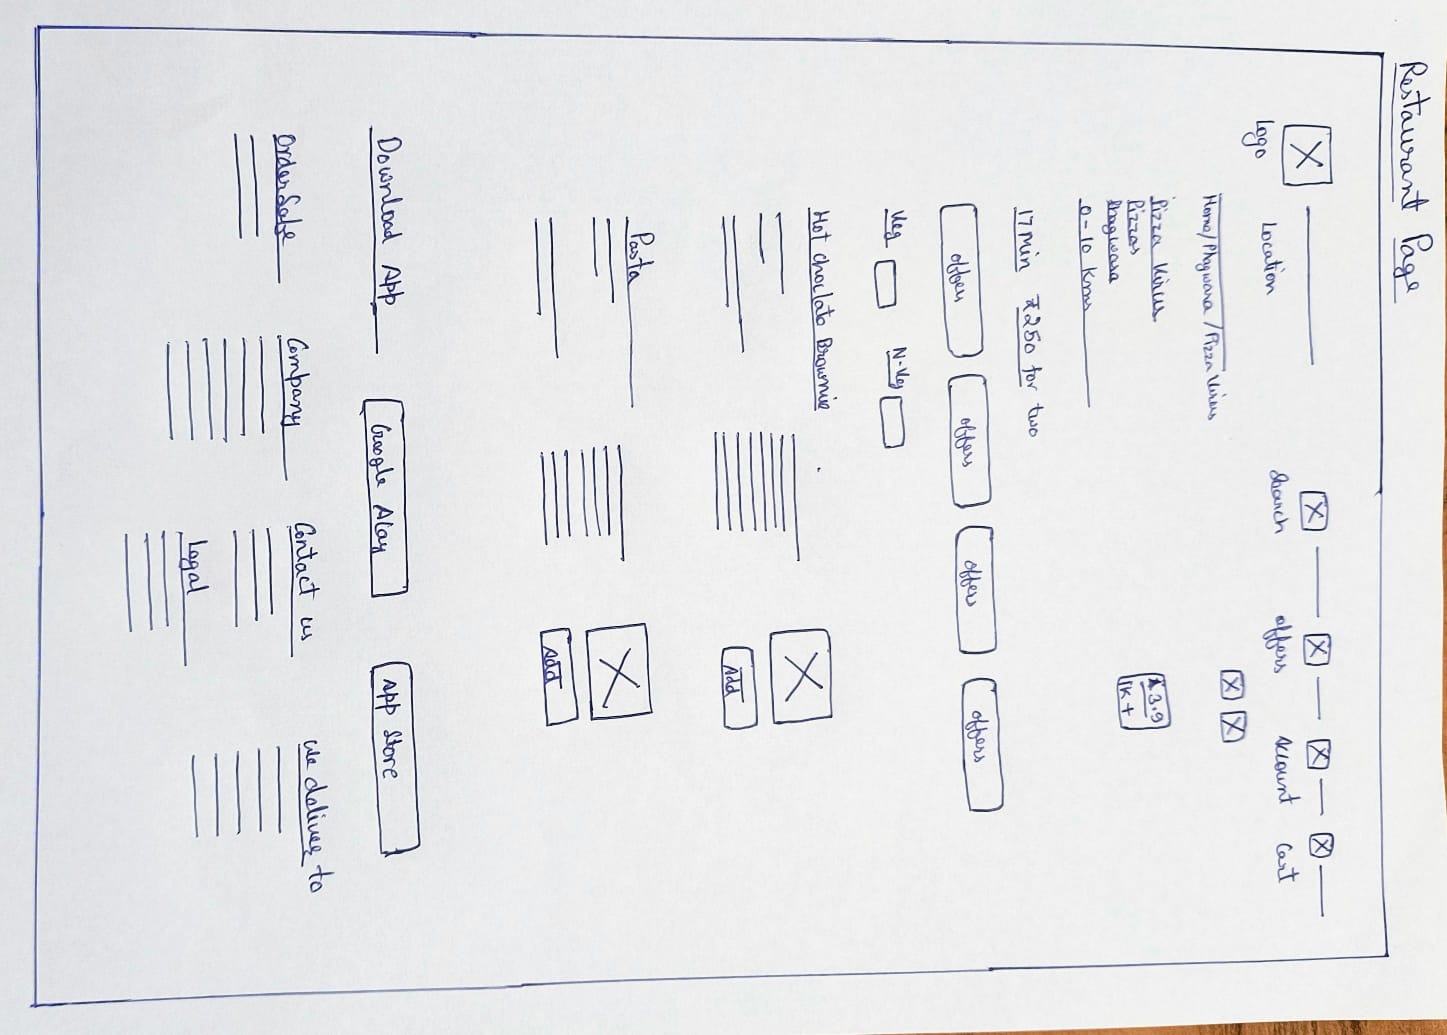 Restaurant Page
Logo
Location
Search
offers
Account
Cart
Home/Phagwara/Pizza Virus
Pizza Virus
Pizzas
Phagwara
0-10 Kms
★ 3.9
1K +
17 min ₹250 for two
offers offers offers offers
Veg N-Veg
Hot choclate Brownie
Add
Pasta
Add
Download App Google Play App Store
Order Safe Company Contact us We deliver to
Legal